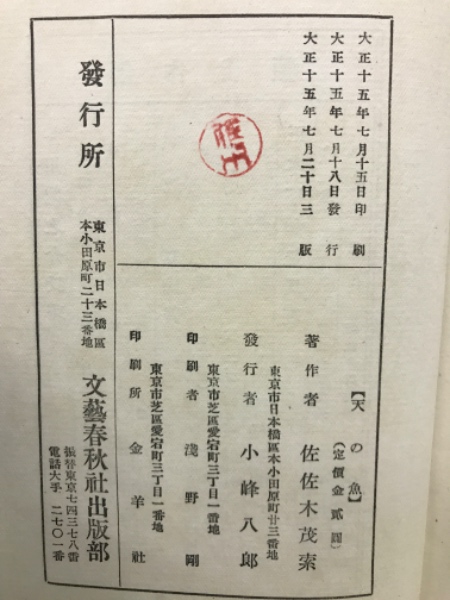 大正十五年七月十五日印刷
大正十五年七月十八日發行
大正十五年七月二十日三版
【天の魚】
(定價金貳圓)
著作者 佐佐木茂索
東京市日本橋區本小田原町廿三番地
發行者 小峰八郎
東京市芝區愛宕町三丁目一番地
印刷者 淺野剛
東京市芝區愛宕町三丁目一番地
印刷所 金羊社
發行所
東京市日本橋區
本小田原町二十三番地
文藝春秋社出版部
振替東京七四三七八番
電話大手二七〇一番